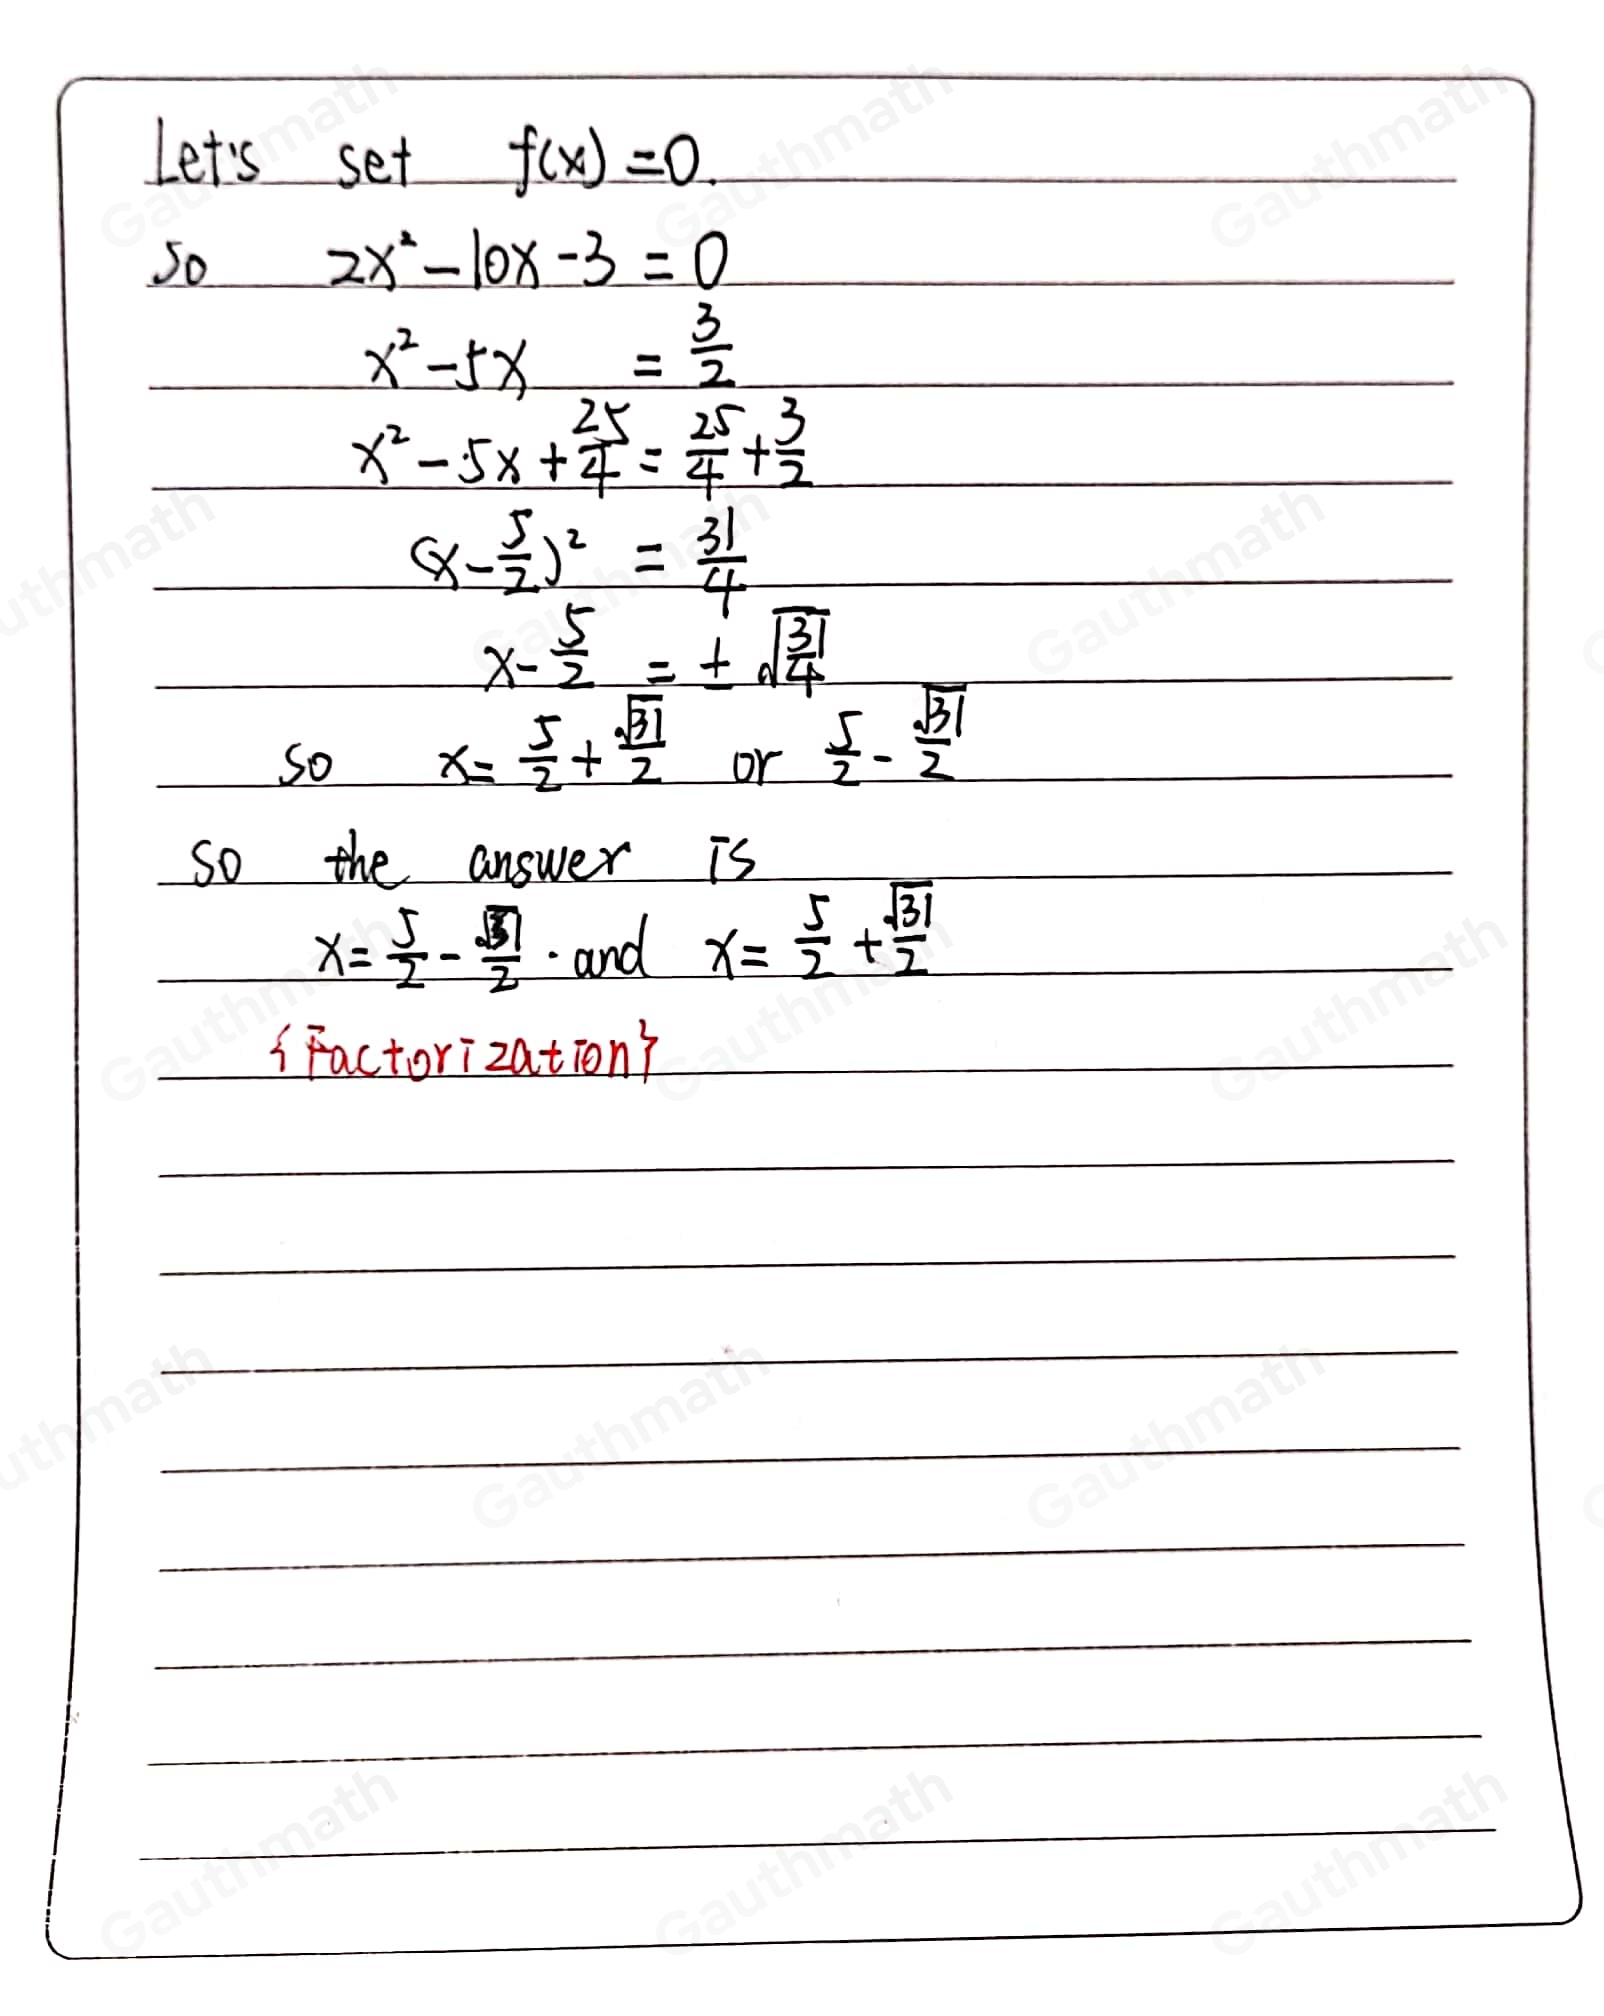 Let's set f(x) = 0.
So 2x² - 10x - 3 = 0
x² - 5x = 3/2
x² - 5x + 25/4 = 25/4 + 3/2
(x - 5/2)² = 31/4
x - 5/2 = ± √(31/4)
so x = 5/2 + √31/2 or 5/2 - √31/2
so the answer is
x = 5/2 - √31/2 . and x = 5/2 + √31/2
{Factorization}
Gauthmath